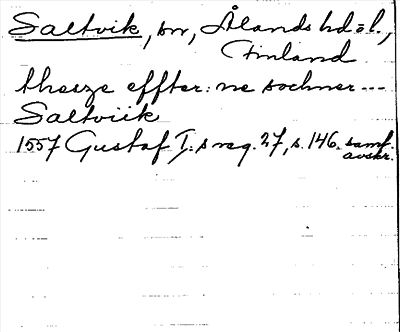 Saltvik, sn, Ålands hd ö l.,
Finland
thesze effter: ne sochner ---
Saltviik
1557 Gustaf I:s reg. 27, s. 146. samt.
avskr.